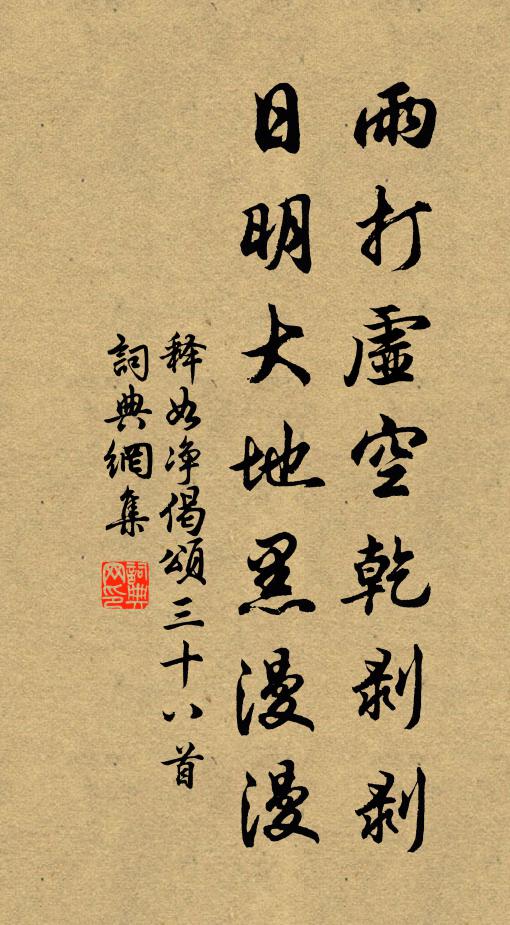 雨打虛空乾剝剝
日明大地黑漫漫
释如净偈頌三十八首
詞典網集
詞典網印